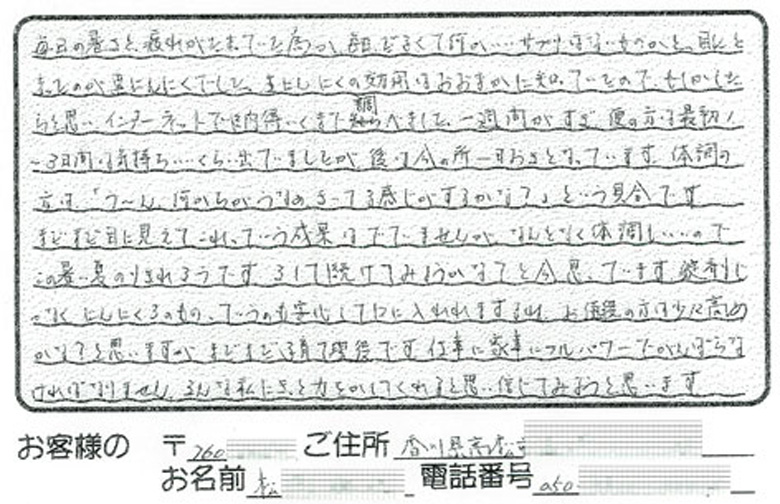 毎日の暑さと疲れがたまっていた為か、毎日だるくて何かいいサプリはないものかと、目にと
まったのが黒にんにくでした。黒にんにくの効用はおおまかに知っていたので、もしかした
らと思い、インターネットで納得いくまで調べました。一週間がすぎ、便の方は最初1
〜3日間は気持ちいいくらい出ていましたが、後は今の所一日おきとなっています。体調の
方は、「う〜ん、何かちがうなぁ、きってる感じがするかな?」という具合です。
まだまだ目に見えてこれっていう成果はでていませんが、なんとなく体調もいいので
この暑い夏のりきれそうです。そして続けてみようかなぁと今思っています。錠剤じ
なく、にんにくそのもの、っていうのも安心して口に入れれますよね。お値段の方は少々高め
かな?と思いますが、まだまだ子育て 中です。仕事に家事にフルパワーでがんばらな
ければなりません。そんな私にきっと力をかしてくれると思い、信じてみようと思います。
お客様の 〒760 ご住所 香川県高松市
お名前 松 電話番号 050-